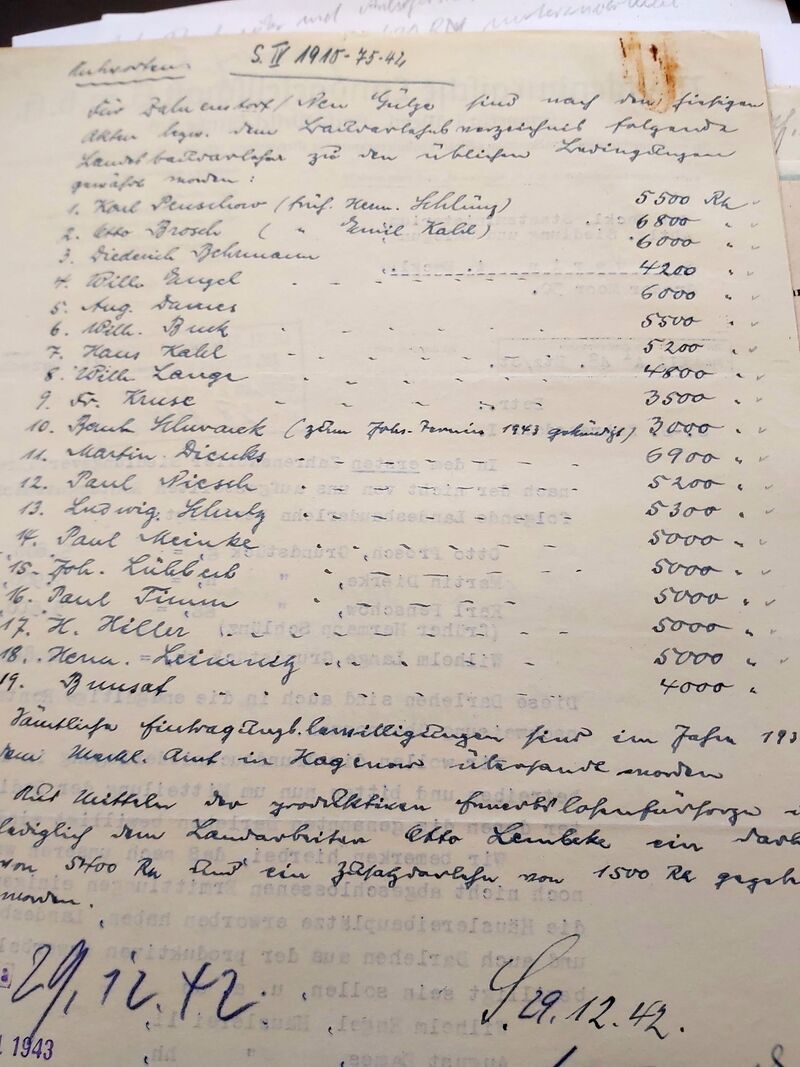 Antworten S. IV 1910-75-42
Für Dahnenstorf/Neu Gülze sind nach den hiesigen
Akten bezw. dem Baudarlehnsverzeichnis folgende
Landesbaudarlehn zu den üblichen Bedingungen
gewährt worden:
1. Karl Penschow (früh. Herm. Schlüng) 5500 RM
2. Otto Brosch ( " Emil Kahl) 6800 "
3. Diederich Behrmann 6000 "
4. Wilh. Engel 4200 "
5. Aug. Dames 6000 "
6. Wilh. Buck 5500 "
7. Hans Kahl 5200 "
8. Wilh. Lange 4800 "
9. Fr. Kruse 3500 "
10. Schwarck (zum Johs-Termin 1943 gekündigt) 3000 "
11. Martin Dierks 6900 "
12. Paul Niesch 5200 "
13. Ludwig Schultz 5300 "
14. Paul Meinke 5000 "
15. Joh. Lübbert 5000 "
16. Paul Timm 5000 "
17. H. Hiller 5000 "
18. Herm. Leimnitz 5000 "
19. Brusat 4000 "
Sämtliche Eintragungsbewilligungen sind im Jahre 193
dem Meckl. Amt in Hagenow übersandt worden
Aus Mitteln der produktiven Erwerbslosenfürsorge
lediglich dem Landarbeiter Otto Lembcke ein Darl
von 5400 RM und ein Zusatzdarlehn von 1500 RM gegeb
worden.
29.12.42 S. 29.12.42.
1943